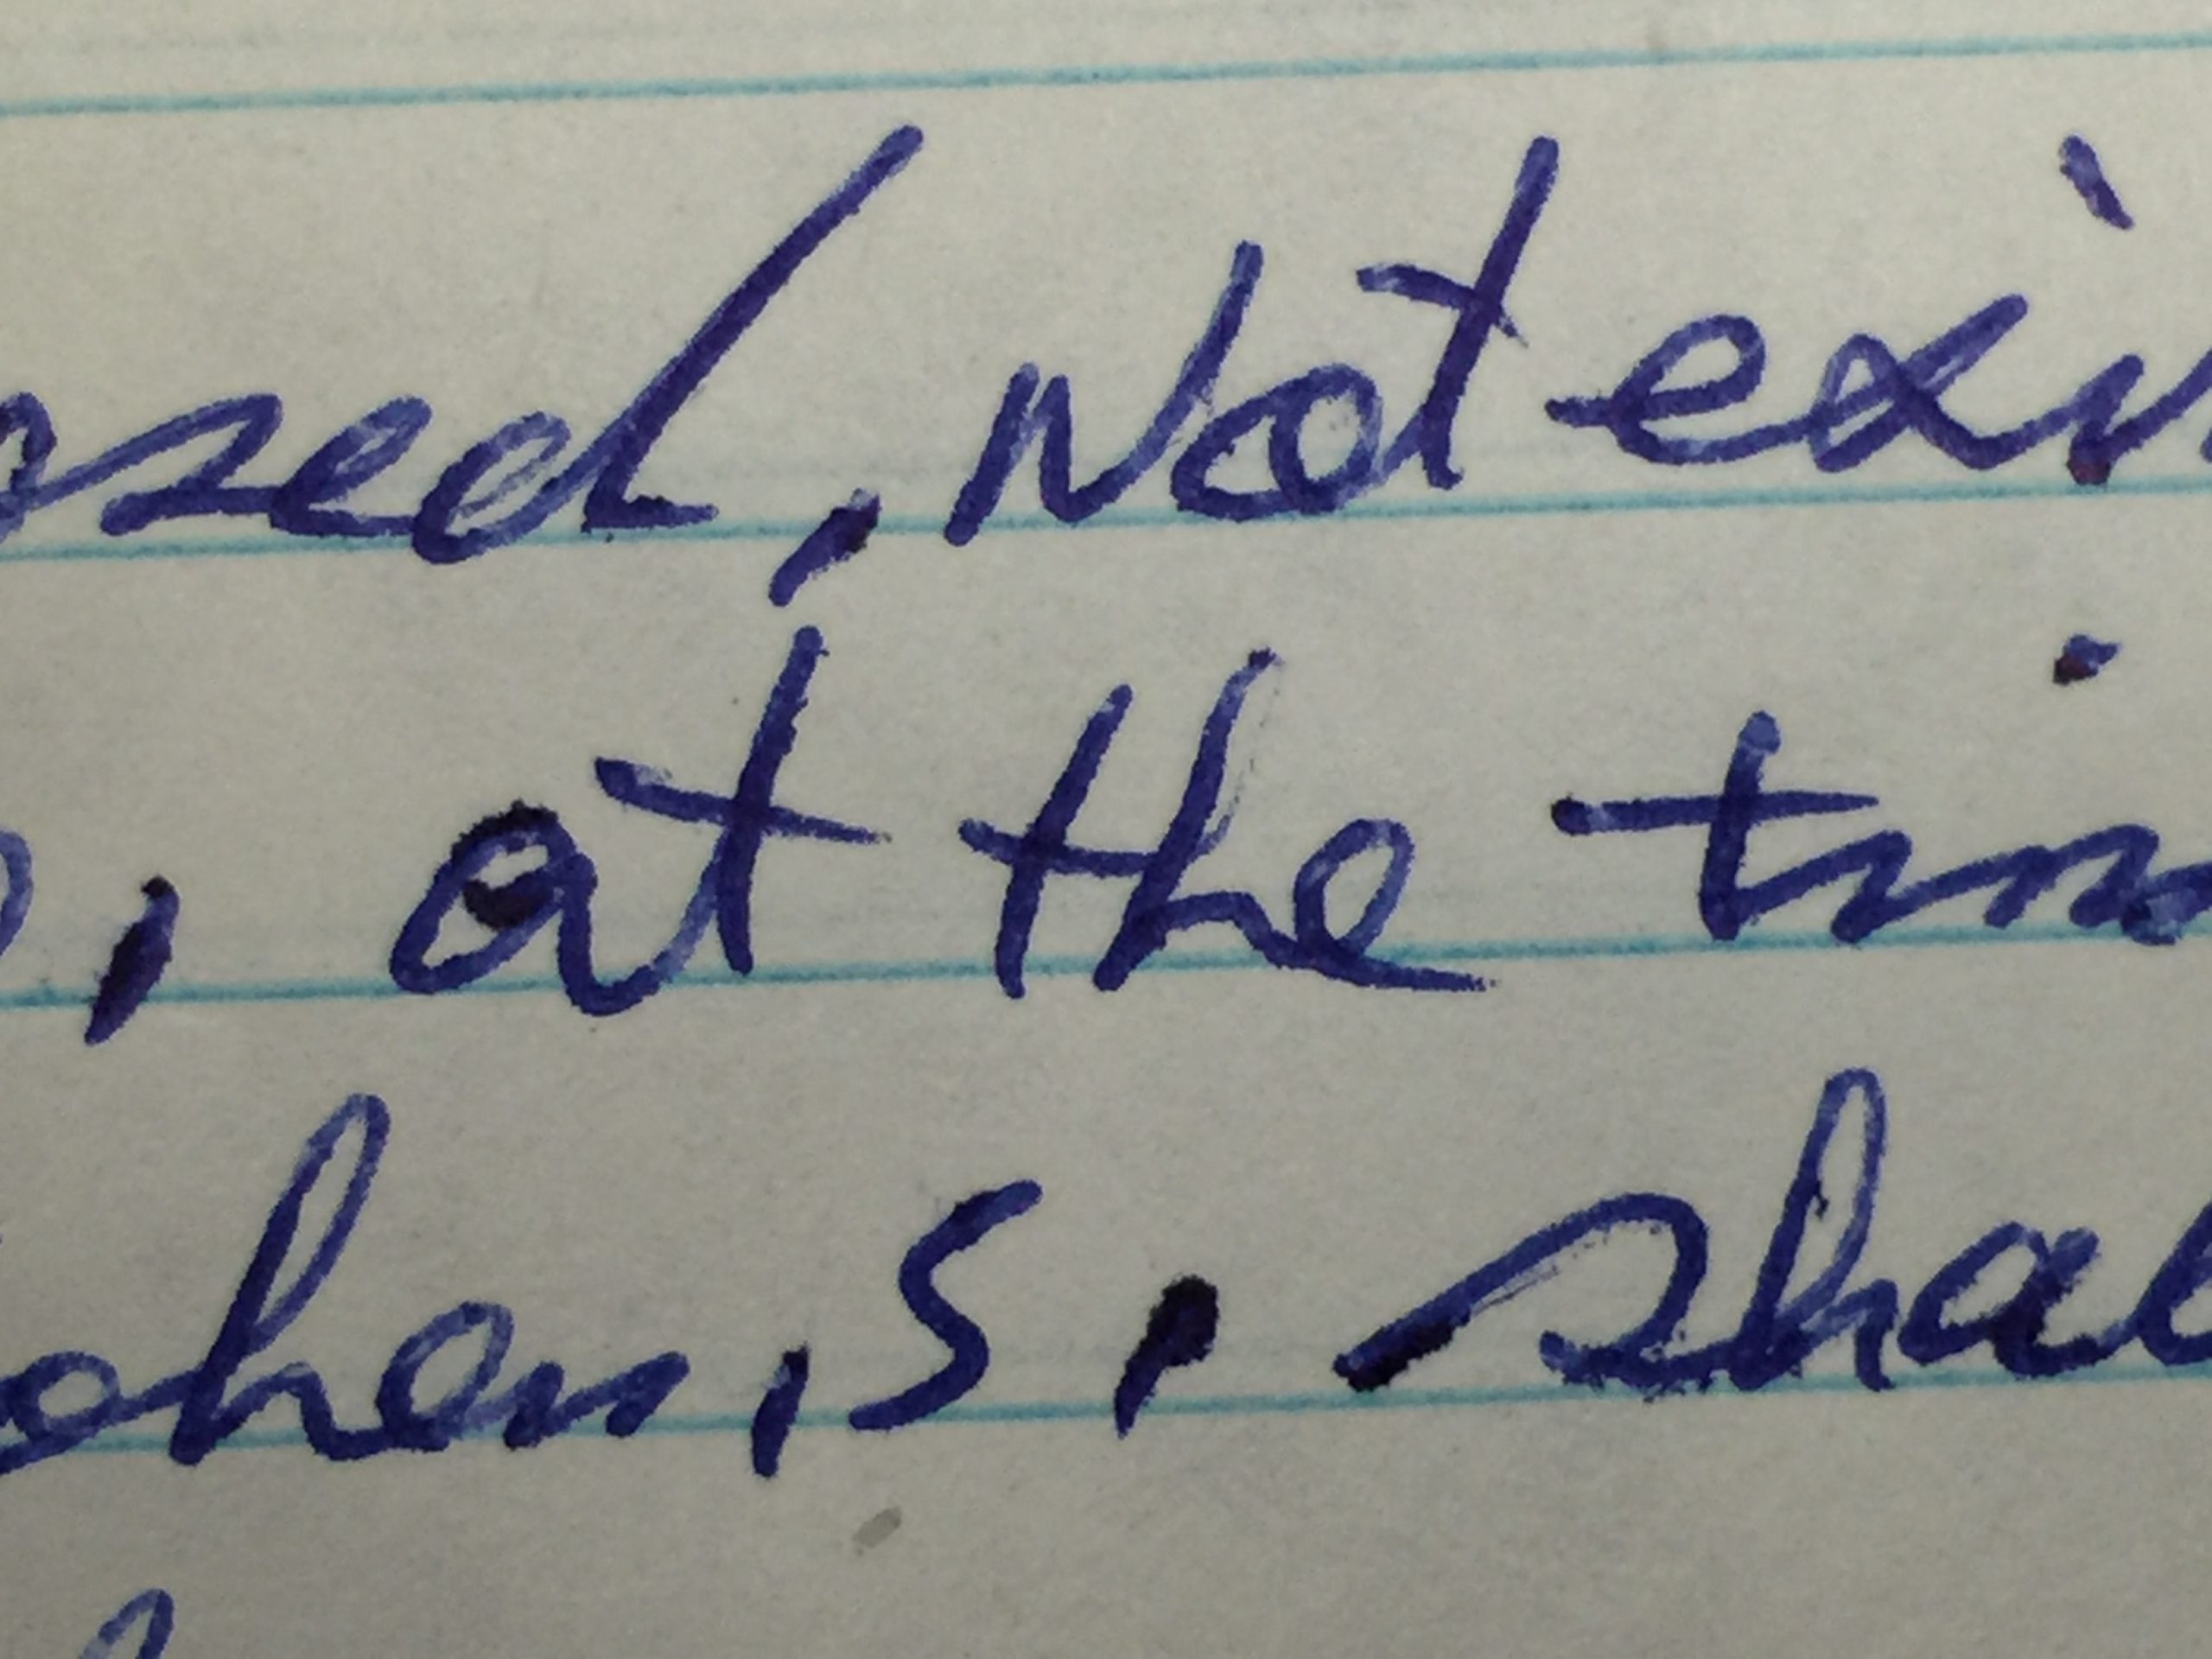 sed, Not exi
, at the tim
ohen,s, shal